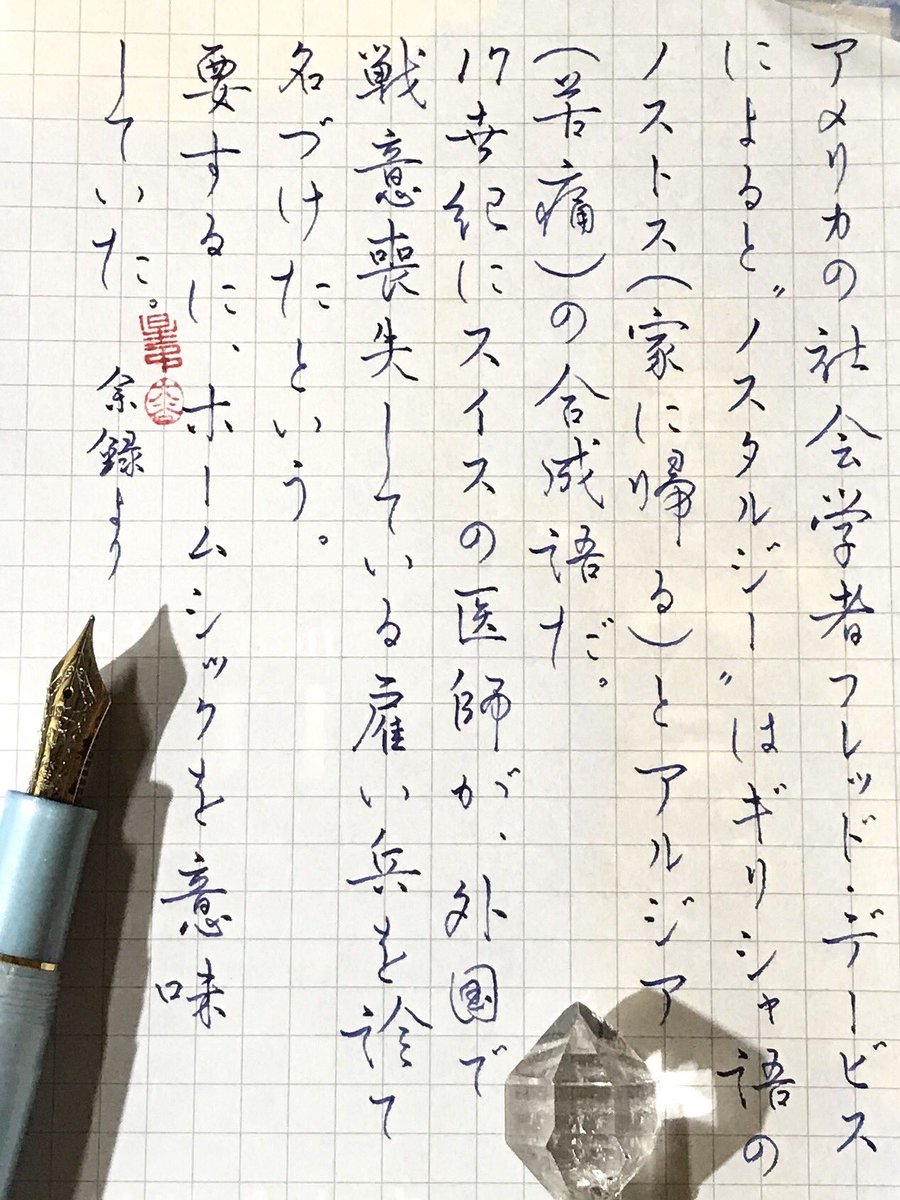 アメリカの社会学者フレッド・デービス
によると〝ノスタルジー〟はギリシャ語の
ノストス(家に帰る)とアルジア
(苦痛)の合成語だ。
17世紀にスイスの医師が、外国で
戦意喪失している雇い兵を診て
名づけたという。
要するに、ホームシックを意味
していた。
余録より